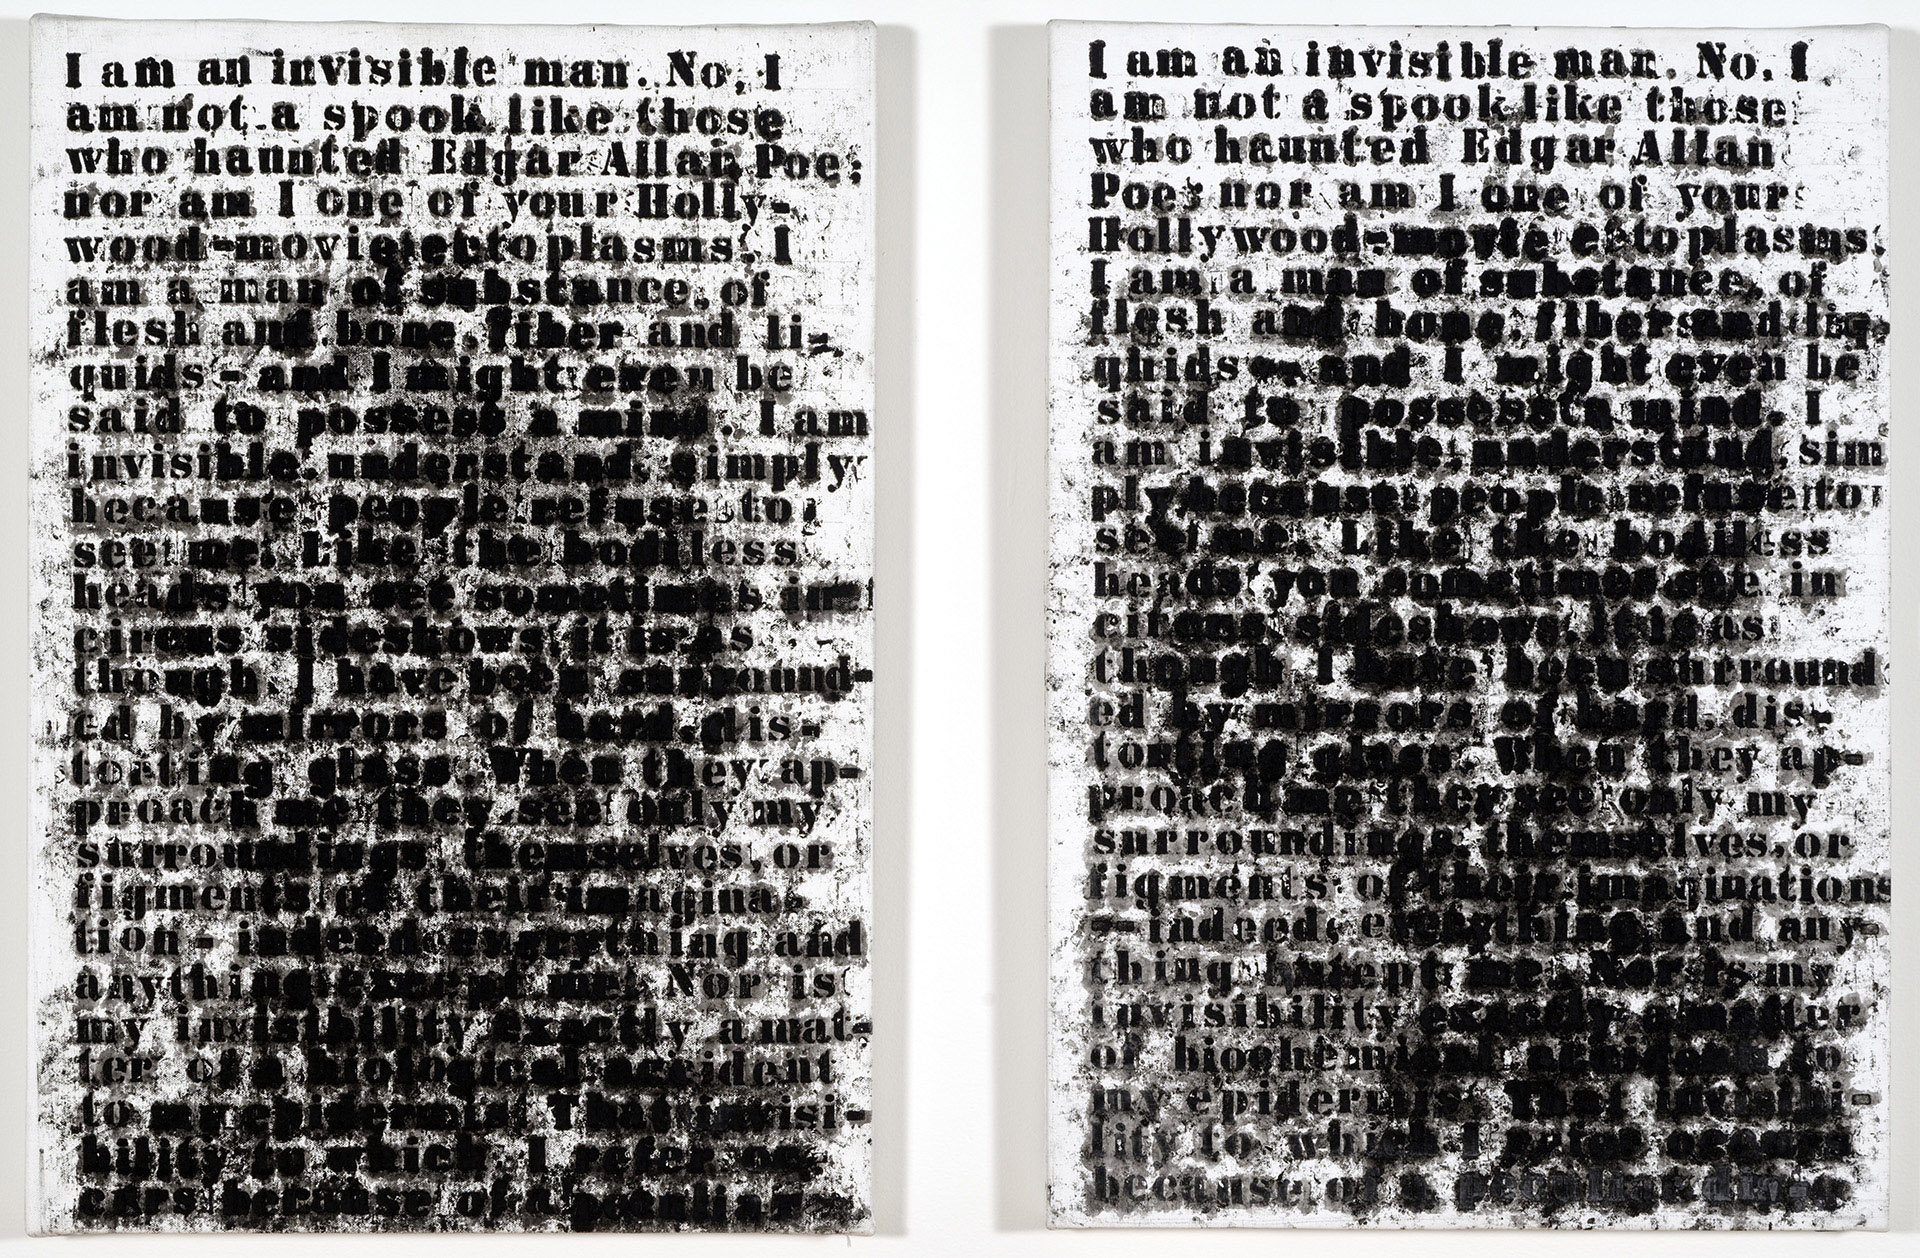 I am an invisible man. No, I
am not a spook like those
who haunted Edgar Allan Poe;
nor am I one of your Holly-
wood-movie ectoplasms. I
am a man of substance, of
flesh and bone, fiber and li-
quids - and I might even be
said to possess a mind. I am
invisible, understand, simply
because people refuse to
see me. Like the bodiless
heads you see sometimes in
circus sideshows, it is as
though I have been surround-
ed by mirrors of hard, dis-
torting glass. When they ap-
proach me they see only my
surroundings, themselves, or
figments of their imagina-
tion - indeed, everything and
anything except me. Nor is
my invisibility exactly a mat-
ter of a biological accident
to my epidermis. That invisi-
bility to which I refer oc-
curs because of a peculiar
I am an invisible man. No, I
am not a spook like those
who haunted Edgar Allan
Poe; nor am I one of your
Hollywood-movie ectoplasms.
I am a man of substance, of
flesh and bone, fiber and liq-
uids - and I might even be
said to possess a mind. I
am invisible, understand, sim
ply because people refuse to
see me. Like the bodiless
heads you sometimes see in
circus sideshows, it is as
though I have been surround
ed by mirrors of hard, dis-
torting glass. When they ap-
proach me they see only my
surroundings, themselves, or
figments of their imaginations
- indeed, everything and any-
thing except me. Nor is my
invisibility exactly a matter
of biochemical accident to
my epidermis. That invisibi-
lity to which I refer occurs
because of a peculiar dis-